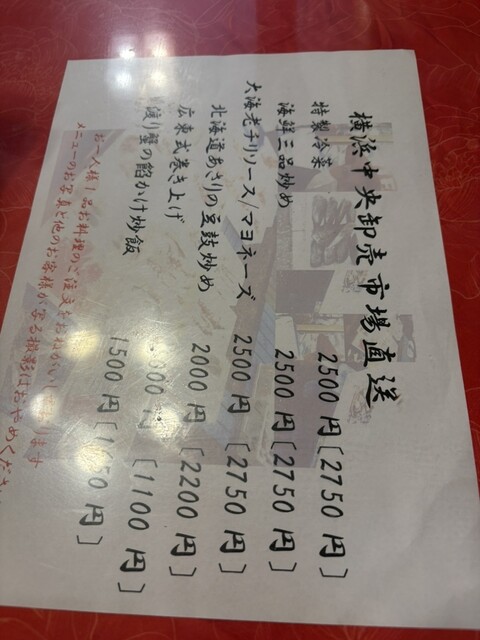 横浜中央卸売市場直送
特製冷菜 2500円〔2750円〕
海鮮三品炒め 2500円〔2750円〕
大海老チリソース/マヨネーズ 2500円〔2750円〕
北海道あさりの豆鼓炒め 2000円〔2200円〕
広東式巻き上げ 000円〔1100円〕
渡り蟹の餡かけ炒飯 1500円〔1650円〕
お一人様1品お料理のご注文をおねがい ます
メニューのお写真と他のお客様が写る撮影はおやめくださ